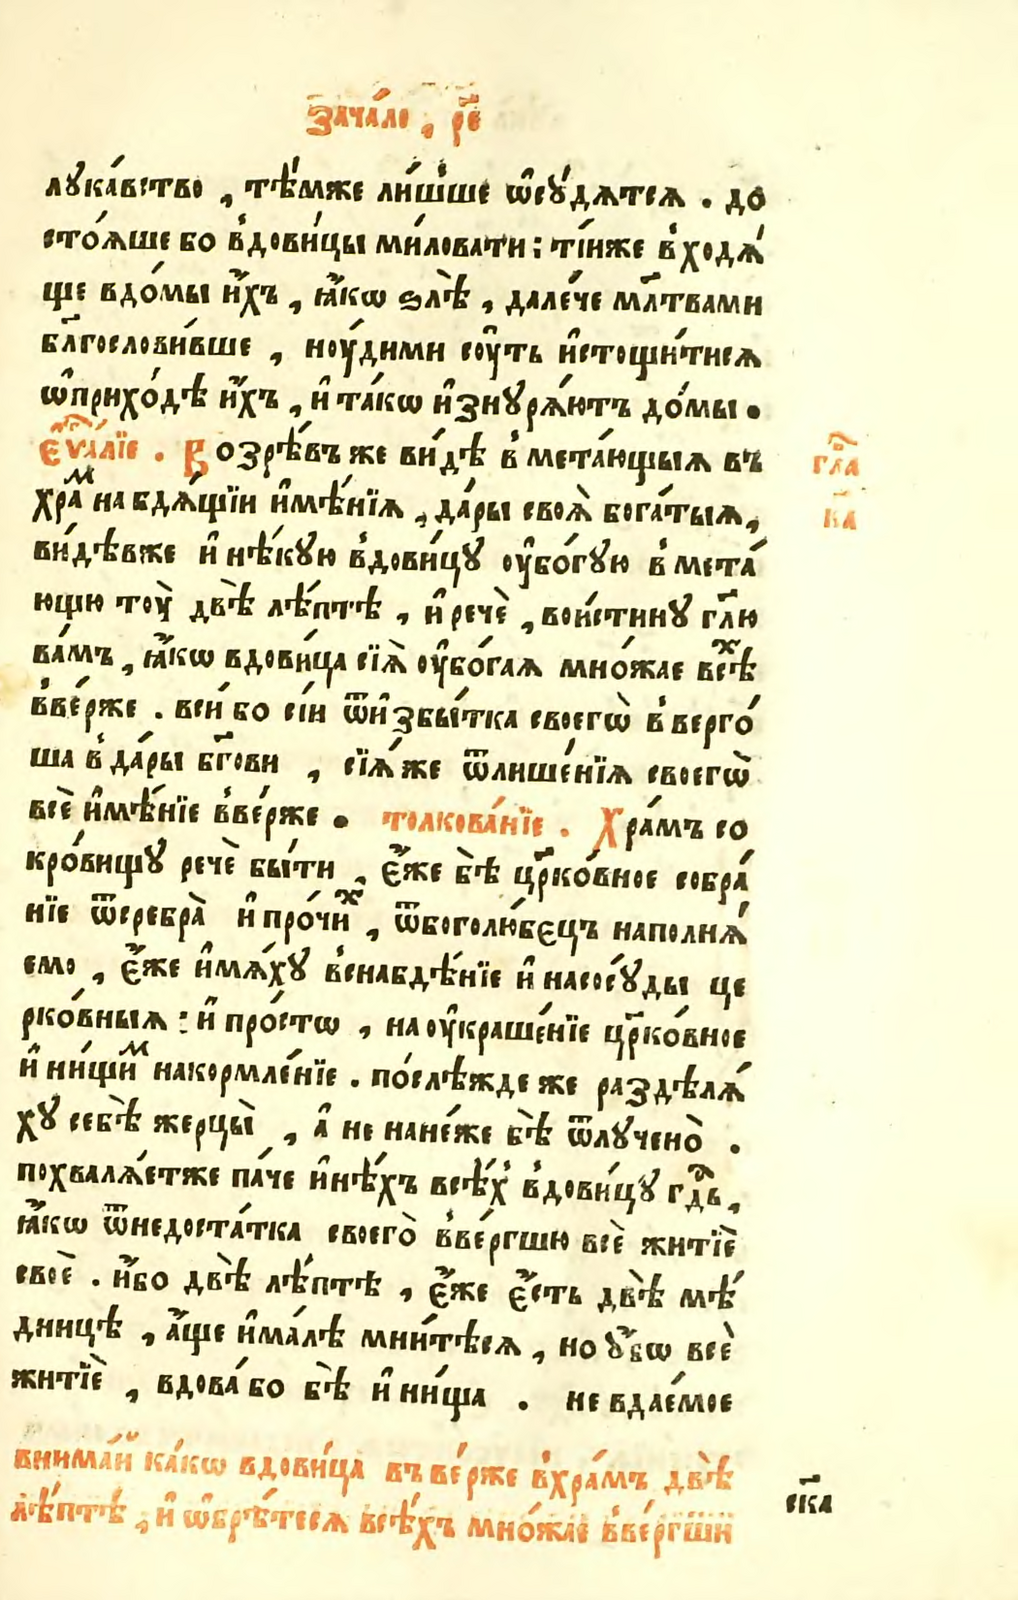 зача́ло , р҃е
лꙋка́вство , тѣ́мже ли́шше ѡ҆сꙋ́дѧтсѧ . до
сто́ѧше бо вдови́цы ми́ловати ; ті́иже входѧ́
ще вдо́мы и҆́хъ , ꙗ҆́кѡ ѕлѣ̀ , дале́че мл҃твами
бл҃гослови́вше , ноу́дими соу́ть и҆стощи́тисѧ
ѡ҆прихо́дѣ и҆́хъ , и҆ та́кѡ и҆знꙋрѧ́ютъ до́мы .
є҆ѵⷢ҇а́лїе . Возрѣ́въ же ви́дѣ вмета́ющыѧ въ
хра́ⷨ набдѧ́щїи и҆мѣ́нїѧ , да́ры своѧ̀ бога́тыѧ ,
ви́дѣвже и҆ нѣ́кꙋю вдови́цꙋ оу҆бо́гꙋю вмета́
ющю тоу̀ двѣ̀ лѣ́птѣ , и҆ речѐ , вои́стинꙋ гл҃ю
ва́мъ , ꙗ҆́кѡ вдови́ца сїѧ̀ оу҆бо́гаѧ мно́жае всѣ́ⷯ
вве́рже . вси́ бо сі́и ѿи҆збы́тка своегѡ̀ вверго́
ша вда́ры бг҃ови , сїѧ́ же ѿлише́нїѧ своегѡ̀
всѐ и҆мѣ́нїе вве́рже . толкова́нїе . Хра́мъ со
кро́вищꙋ речѐ бы́ти , є҆́же бѣ̀ цр҃ко́вное собра́
нїе ѿсребра̀ и҆ про́чиⷯ , ѿбоголю́бєцъ наполнѧ́
емо , є҆́же и҆мѧ́хꙋ вснабдѣ́нїе и҆ насосꙋ́ды це
рко́вныѧ : и҆ про́стѡ , на оу҆краше́нїе цр҃ко́вное
и҆ ни́щиⷨ накормле́нїе . по́слѣжде же раздѣлѧ́
хꙋ себѣ̀ жерцы̀ , а҆ не нане́же бѣ̀ ѿлꙋчено̀ .
похвалѧ́етже па́че и҆нѣ́хъ всѣ́х вдови́цꙋ гдⷭ҇ь ,
ꙗ҆́кѡ ѿнедоста́тка своего̀ вве́ргшю всѐ житїѐ
своѐ . и҆́бо двѣ̀ лѣ́птѣ , є҆́же є҆́сть двѣ̀ мѣ́
дницѣ , а҆́ще и҆ма́лѣ мни́тѣсѧ , но ꙋ҆́бѡ всѐ
житїѐ , вдова́ бо бѣ̀ и҆ ни́ща . не вдае́мое
внима́й ка́кѡ вдови́ца въве́рже вхра́мъ двѣ̀
лѣ́птѣ , и҆ ѡ҆брѣ́тесѧ всѣ́хъ мно́жае вве́ргши
гл҃а
к҃а
ск҃а